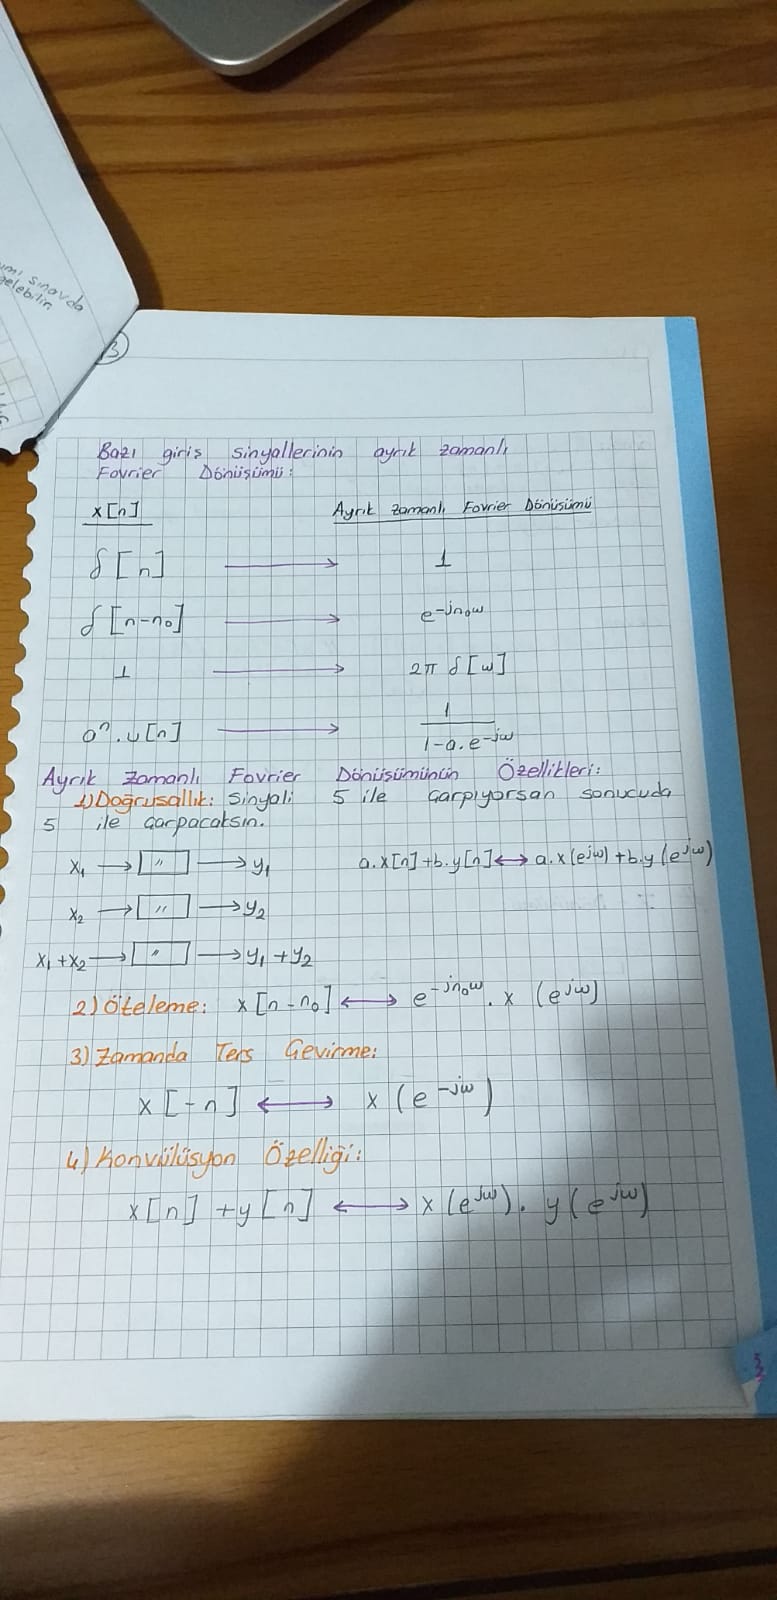 umı sınavda
gelebilir.
3
Bazı giriş sinyallerinin ayrık zamanlı
Fourier Dönüşümü:
x[n] Ayrık zamanlı Fourier Dönüşümü
δ[n] → 1
δ[n-n₀] → e^-jn₀ω
1 → 2π δ[ω]
aⁿ.u[n] → 1/(1-a.e^-jω)
Ayrık zamanlı Fourier Dönüşümünün Özellikleri:
1) Doğrusallık: Sinyali 5 ile çarpıyorsan sonucuda
5 ile çarpacaksın.
x₁ → [ " ] → y₁ a.x[n]+b.y[n] ↔ a.x(e^jω)+b.y(e^jω)
x₂ → [ " ] → y₂
x₁+x₂ → [ " ] → y₁+y₂
2) Öteleme: x[n-n₀] ↔ e^-jn₀ω . x (e^jω)
3) Zamanda Ters Çevirme:
x[-n] ↔ x(e^-jω)
4) Konvülüsyon Özelliği:
x[n] +y[n] ↔ x(e^jω). y(e^jω)
3